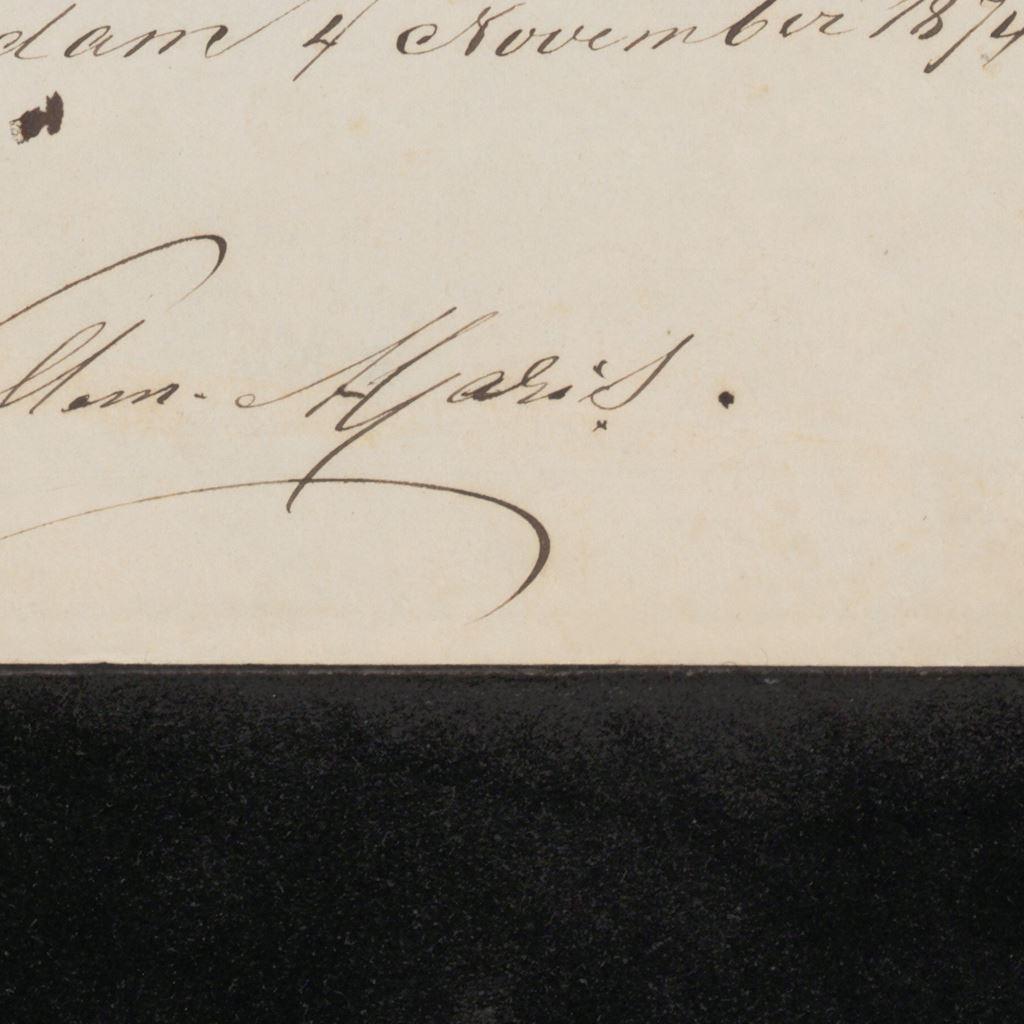 dam 4 November 1874
llem. Maris.